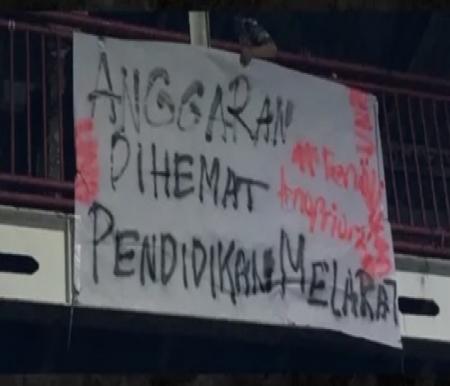 ANGGARAN
DIHEMAT
PENDIDIKAN MELARAT